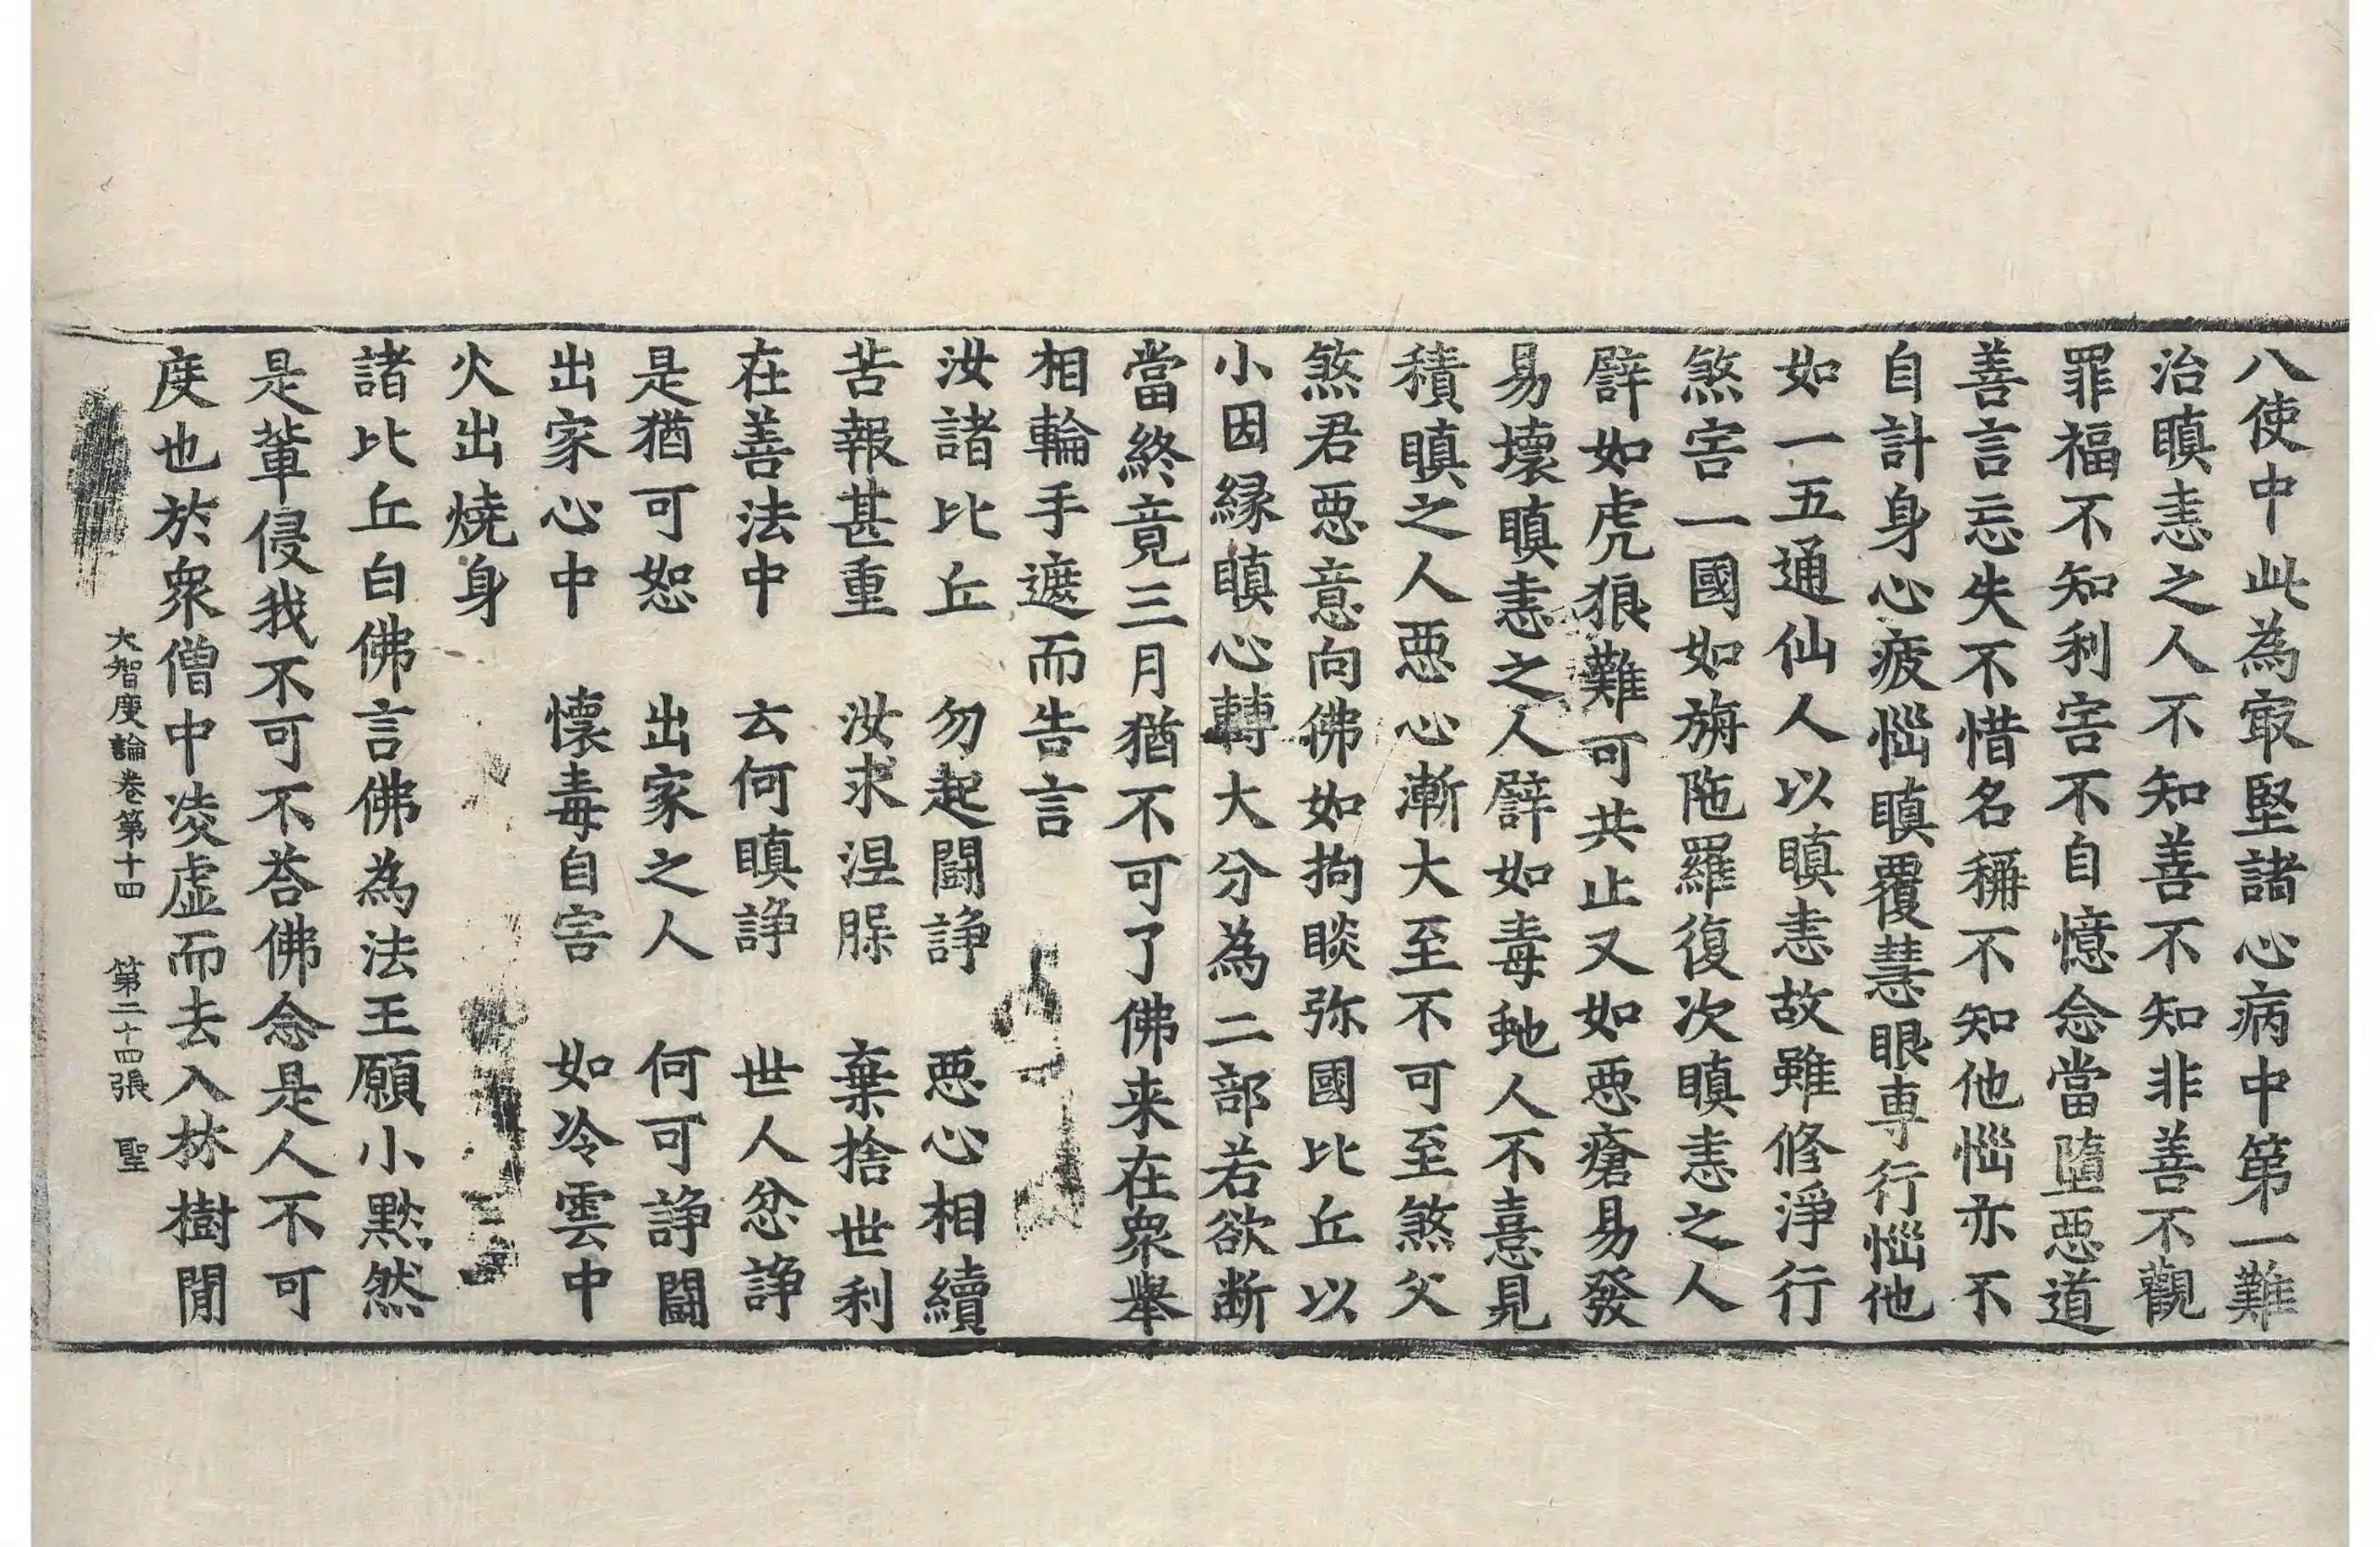 八使中此為㝡堅諸心病中第一難
治瞋恚之人不知善不知非善不觀
罪福不知利害不自憶念當墮惡道
善言忘失不惜名稱不知他惱亦不
自計身心疲惱瞋覆慧眼専行惱他
如一五通仙人以瞋恚故雖修淨行
煞害一國如旃陁羅復次瞋恚之人
譬如虎狼難可共止又如惡瘡易發
易壞瞋恚之人譬如毒虵人不憙見
積瞋之人惡心漸大至不可至煞父
煞君惡意向佛如拘睒弥國比丘以
小因緣瞋心轉大分為二部若欲断
當終竟三月猶不可了佛来在衆舉
相輪手遮而告言
汝諸比丘　勿起鬪諍　惡心相續
苦報甚重　汝求涅膍　棄捨世利
在善法中　云何瞋諍　世人忿諍
是猶可恕　出家之人　何可諍鬪
出家心中　懷毒自害　如冷雲中
火出燒身
諸比丘白佛言佛為法王願小黙然
是輩侵我不可不荅佛念是人不可
度也於衆僧中淩虛而去入林樹閒
大智度論卷第十四　第二十四張　聖